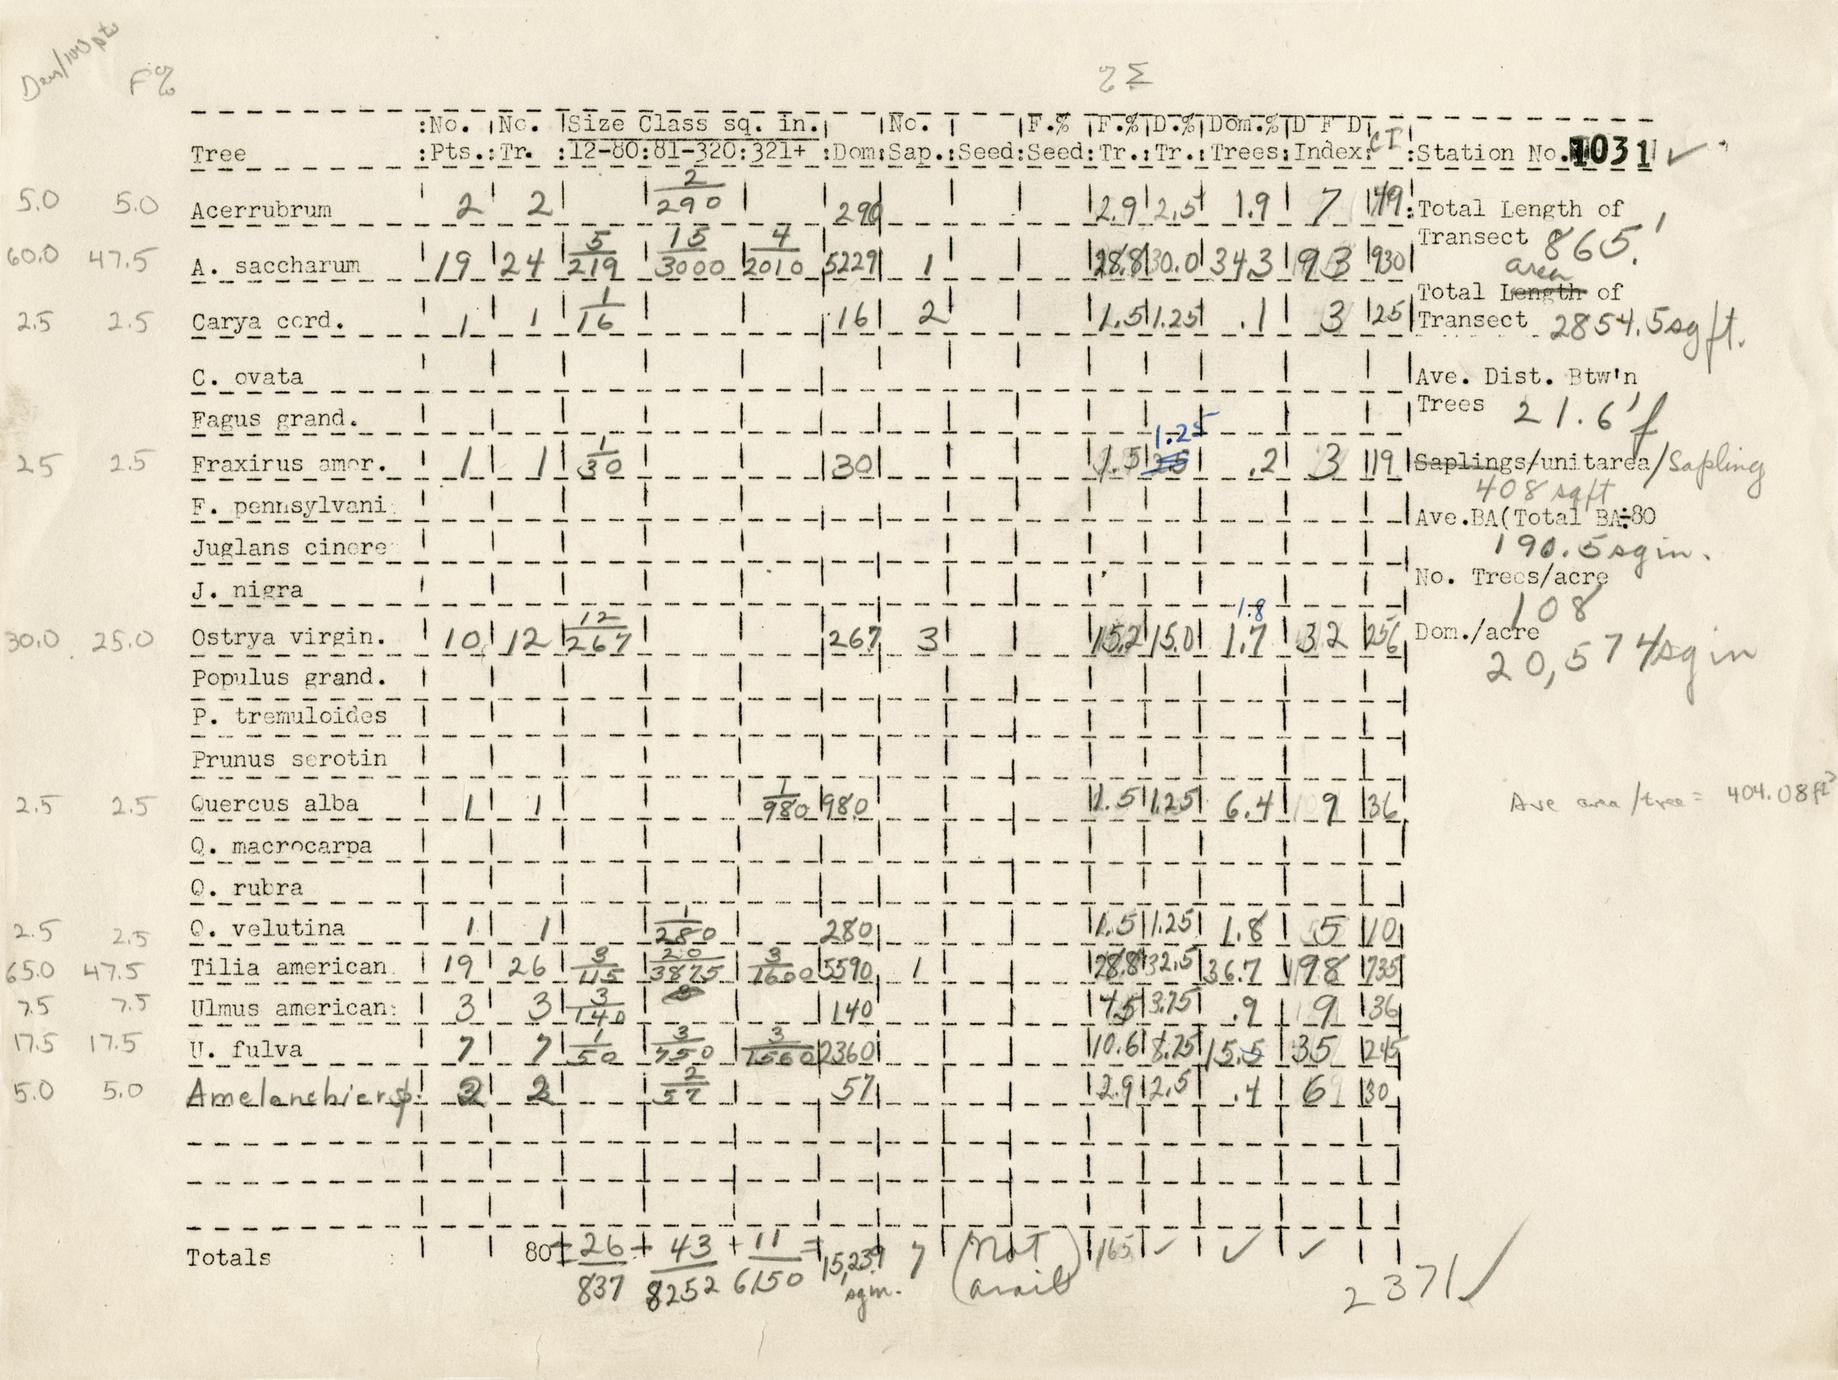 Den/100 pts F% % Σ
:No. No. Size Class sq. in. No. F.% F.% D.% Dom.% D F D
Tree :Pts.: Tr. :12-80:81-320:321+ :Dom: Sap.: Seed: Seed: Tr.: Tr.: Trees: Index: CI :Station No. 1031 ✓
5.0 5.0 Acerrubrum 2 2 2/290 290 2.9 2.5 1.9 7 49 :Total Length of
Transect 865.'
60.0 47.5 A. saccharum 19 24 5/219 15/3000 4/2010 5229 1 28.8 30.0 34.3 93 930
area
Total Length of
2.5 2.5 Carya cord. 1 1 1/16 16 2 1.5 1.25 .1 3 25 Transect 2854.5 sq ft.
C. ovata Ave. Dist. Btw'n
Fagus grand. Trees 21.6'
1.25
25 2.5 Fraxirus amer. 1 1 1/30 30 1.5 2.5 .2 3 19 Saplings/unitarea/Sapling
408 sq ft
F. pennsylvani Ave.BA(Total BA÷80
Juglans cinere 190.5 sq in.
J. nigra No. Trees/acre
1.8 108
30.0 25.0 Ostrya virgin. 10 12 12/267 267 3 15.2 15.0 1.7 32 256 Dom./acre
20,574 sq in
Populus grand.
P. tremuloides
Prunus serotin
2.5 2.5 Quercus alba 1 1 1/980 980 1.5 1.25 6.4 9 36 Ave area/tree = 404.08 ft²
Q. macrocarpa
Q. rubra
2.5 2.5 Q. velutina 1 1 1/280 280 1.5 1.25 1.8 5 10
65.0 47.5 Tilia american 19 26 3/115 20/3875 3/1600 5590 1 28.8 32.5 36.7 98 735
7.5 7.5 Ulmus american: 3 3 3/140 140 4.5 3.75 .9 9 36
17.5 17.5 U. fulva 7 7 1/50 3/750 3/1560 2360 10.6 8.75 15.5 35 245
5.0 5.0 Amelanchier sp. 2 2 2/57 57 2.9 2.5 .4 6 30
Totals 80 = 26/837 + 43/8252 + 11/6150 = 15,239 sq in. 7 (Not avail) 165 ✓ ✓ ✓
2371 ✓